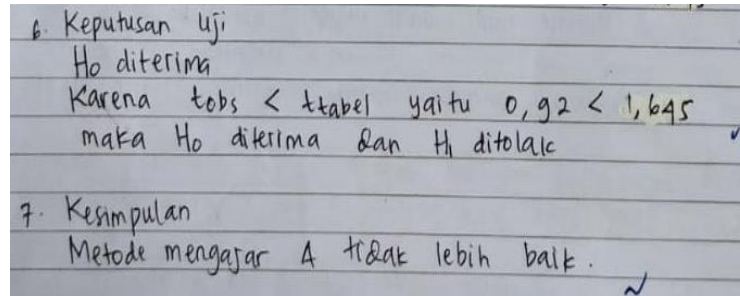 6. Keputusan Uji
Ho diterima
Karena tobs < ttabel yaitu 0,92 < 1,645
maka Ho diterima dan H1 ditolak
7. Kesimpulan
Metode mengajar A tidak lebih baik.